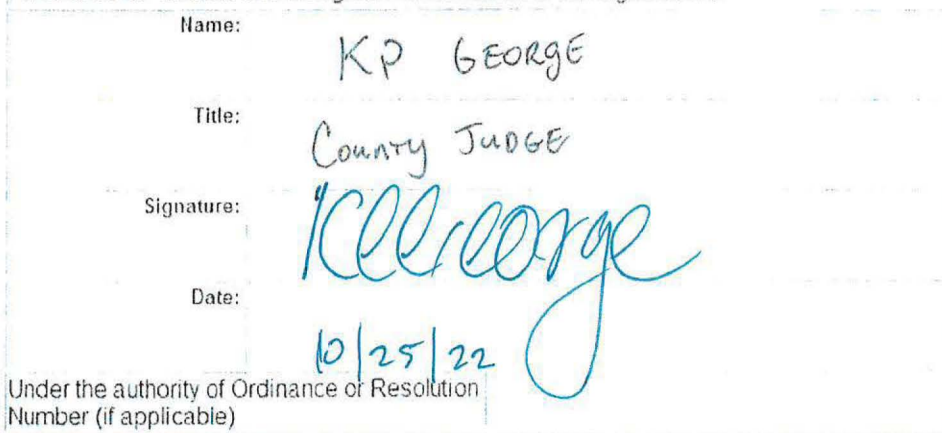 Name:
KP GEORGE
Title:
County JUDGE
Signature:
KPGeorge
Date:
10/25/22
Under the authority of Ordinance or Resolution
Number (if applicable)